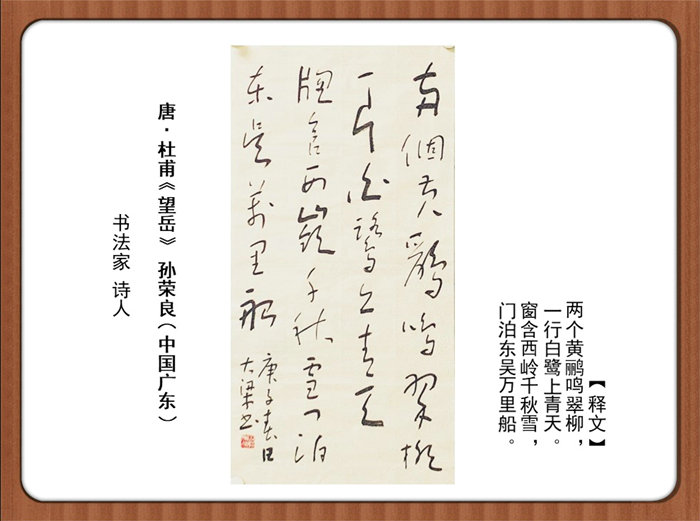 【释文】
两个黄鹂鸣翠柳，
一行白鹭上青天。
窗含西岭千秋雪，
门泊东吴万里船。
两個黄鸝鳴翠柳
一行白鷺上青天
牕含西嶺千秋雪门泊
东吴萬里船
庚子春日
大梁书
唐·杜甫《望岳》 孙荣良（中国广东）
书法家 诗人